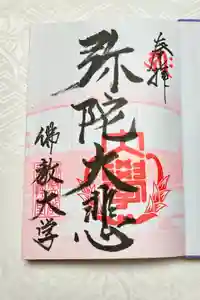 奉拝
弥陀大悲
佛教大学